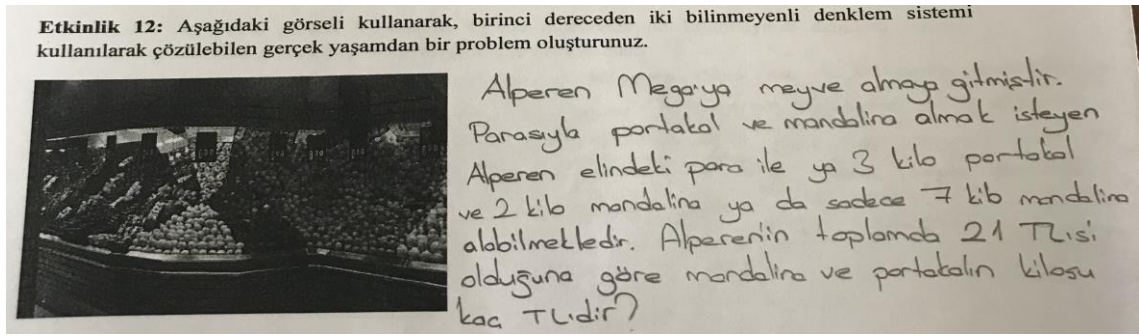 Etkinlik 12: Aşağıdaki görseli kullanarak, birinci dereceden iki bilinmeyenli denklem sistemi
kullanılarak çözülebilen gerçek yaşamdan bir problem oluşturunuz.
Alperen Mega'ya meyve almaya gitmiştir.
Parasıyla portakal ve mandalina almak isteyen
Alperen elindeki para ile ya 3 kilo portakal
ve 2 kilo mandalina ya da sadece 7 kilo mandalina
alabilmektedir. Alperen'in toplamda 21 TL'si
olduğuna göre mandalina ve portakalın kilosu
kaç TL'dir?